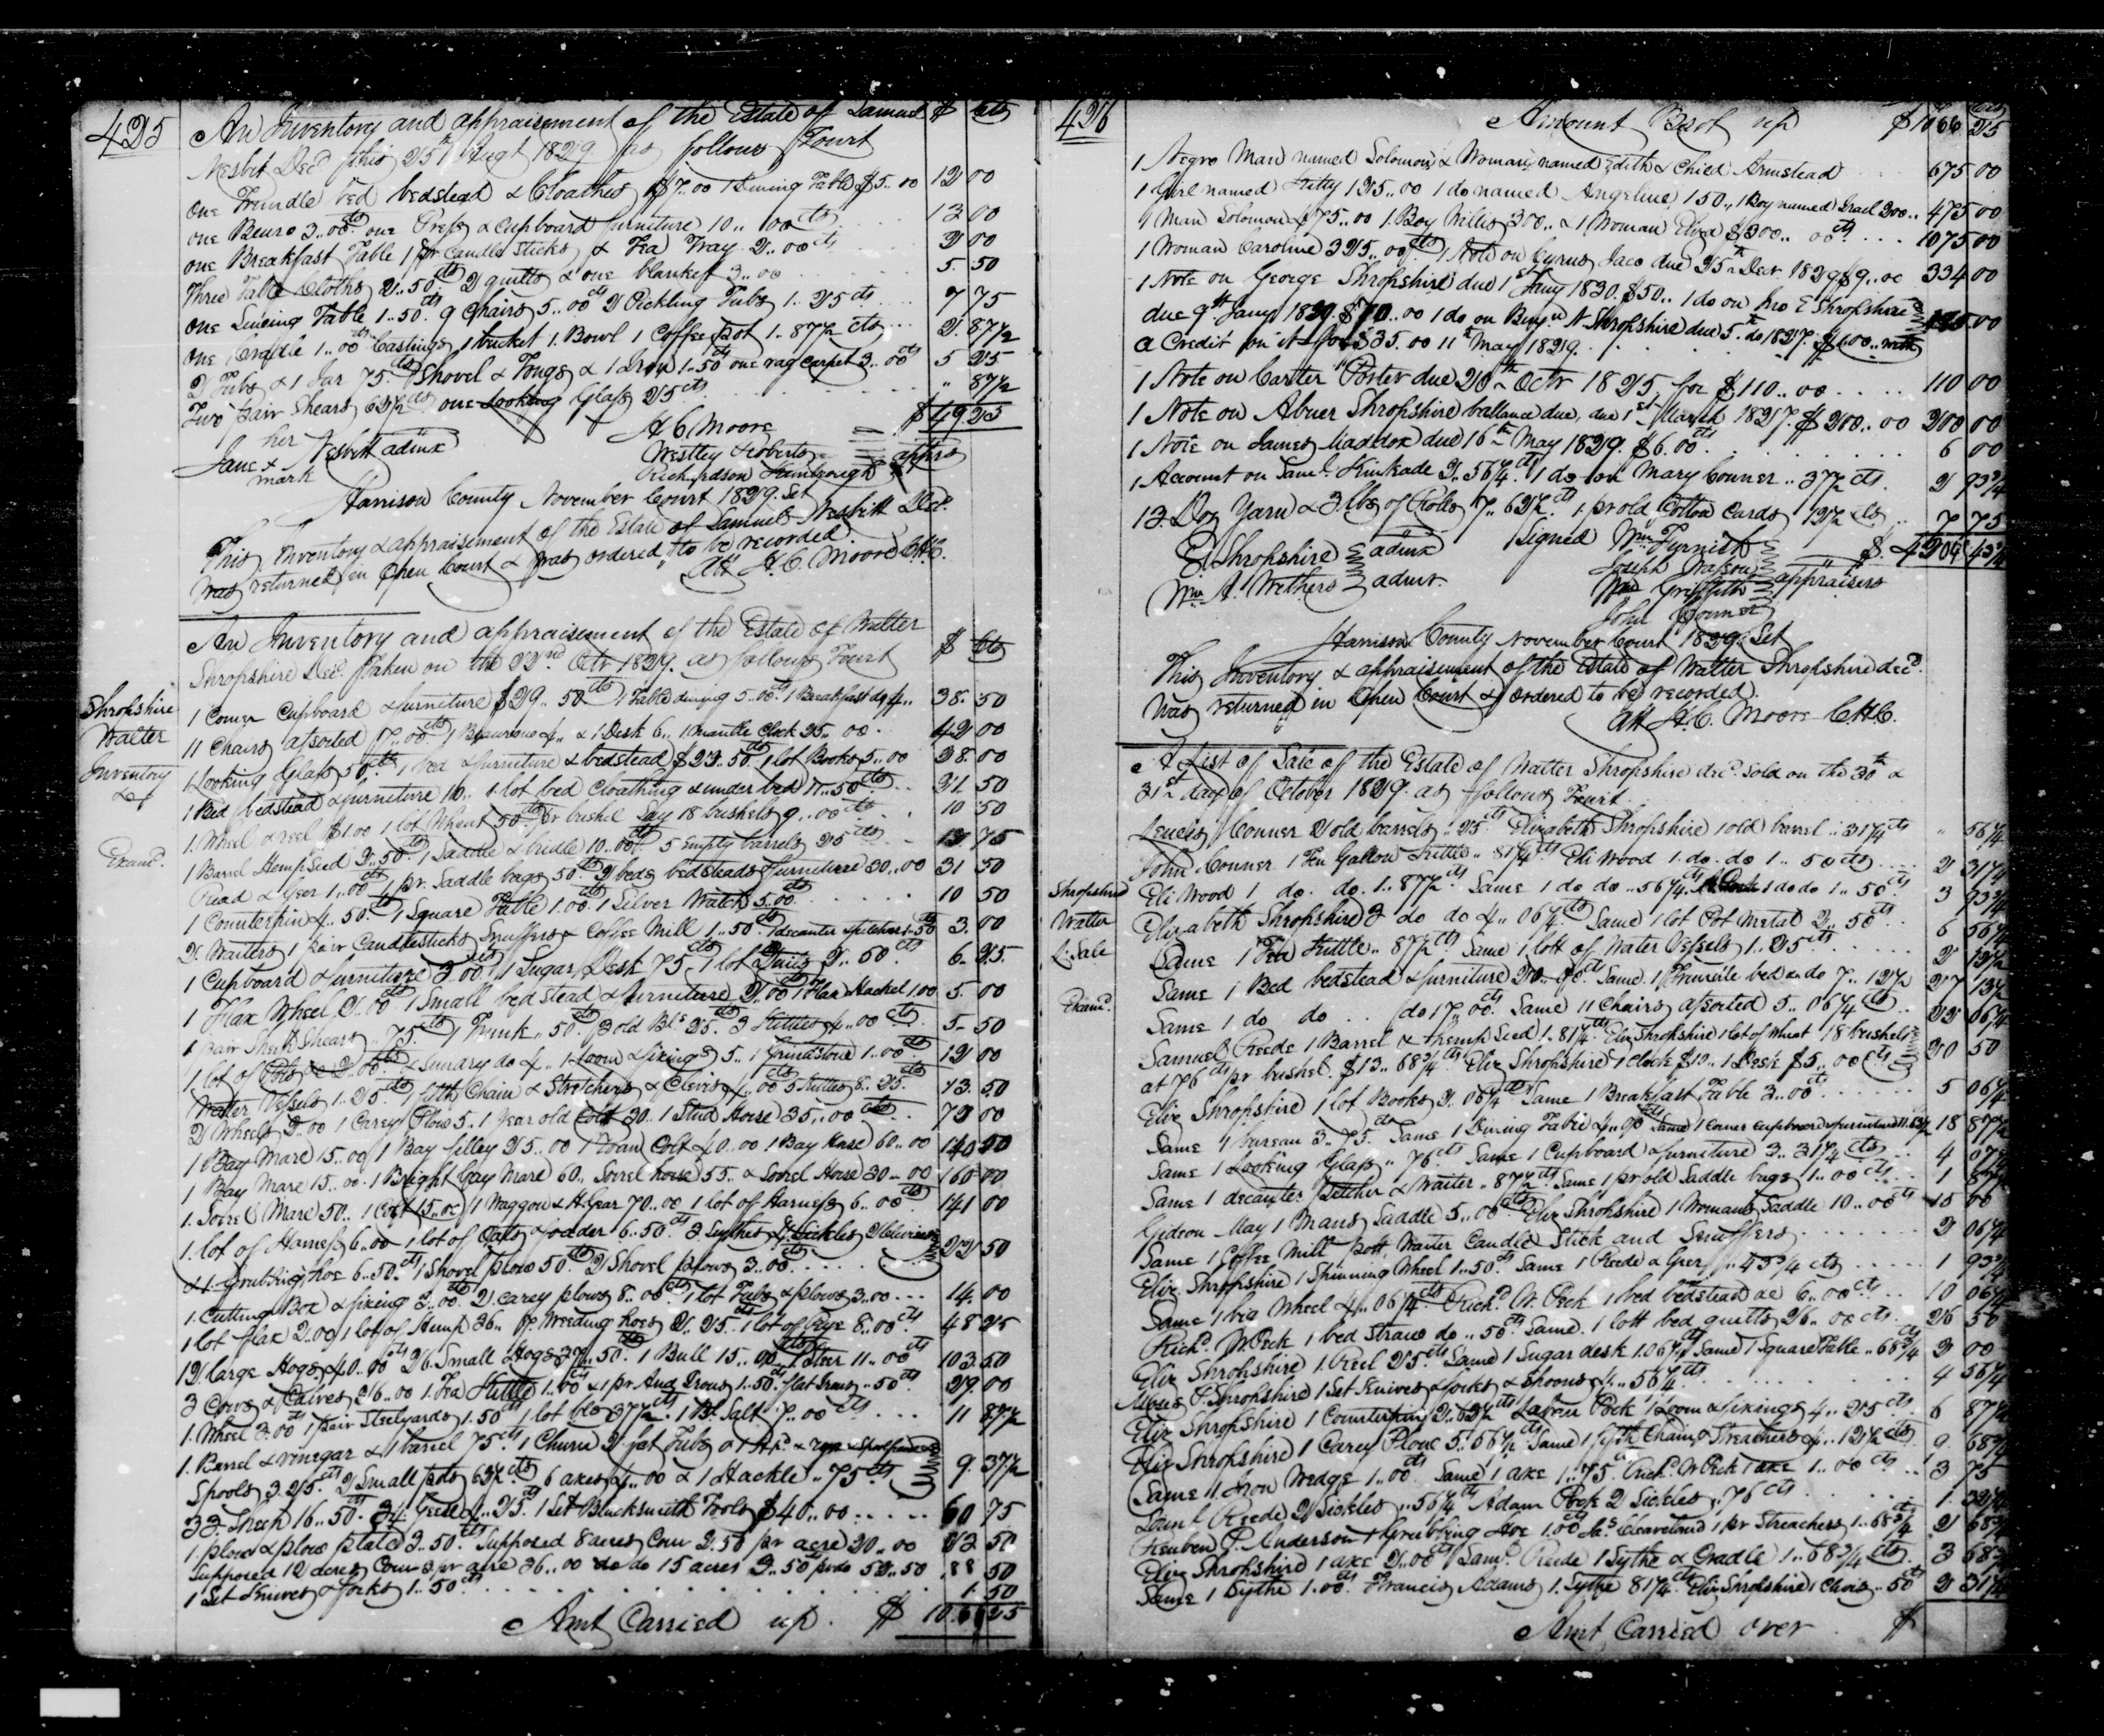 425
An Inventory and appraisement of the Estate of Samuel $ cts
Nesbit Decd this 25th Augt 1829. as follows Towit
One Trundle bed bedstead & Cloathes $7..00 1 Dining Table $5..00 12 00
one Beuro 3..00cts one Press & Cupboard furniture 10..00cts 13 00
one Breakfast Table 1 pr Candle sticks & Tea Tray 2..00cts 2 00
Three Table Cloths 2..50cts 2 quilts & one blanket 3..00 5. 50
One Table 1..50cts 9 Chairs 5..00cts 2 Pickling Tubs 1..25cts 7 75
One Cradle 1..00cts Castings 1 bucket 1. Bowl 1 Coffee pot 1..87½ cts 2. 87½
2 Tubs & 1 Jar 75.cts Shovel & Tongs & 1 Iron 1..50cts one rag carpet 3..00cts 5 25
Two pair Shears 62½cts one looking Glass 25cts " 87½
$ 49 25
her
Jane X Nesbitt admx
mark
H C Moore
Westley Roberts
Richardson
apprs
Harrison County November Court 1829. Set
This Inventory & appraisement of the Estate of Samuel Nesbitt Decd.
Was returned in Open Court & was ordered to be recorded.
Att H. C. Moore C.H.C.
An Inventory and appraisement of the Estate of Walter
Shropshire Decd. Taken on the 22nd. Octr 1829. as follows Towit $ cts
Shropshire
Walter
Inventory
&c
Examd.
1 Corner Cupboard & furniture $29..50cts 1 Table dining 5..00cts 1 Breakfast do 4.. 38. 50
11 Chairs assorted 7..00cts 1 4.. & 1 Desk 6.. 1 mantle Clock 25..00. 42 00
1 Looking Glass 50cts 1 bed & furniture & bedstead $23..50cts 1 lot Books 5..00 28. 00
1 Bed bedstead & furniture 10.. 1 lot bed Cloathing & under bed 11..50cts 21 50
1. Wheel & reel $1.00 1 lot Wheat 50cts pr bushel Say 18 bushels 9..00cts 10 50
1 Barrel Hemp Seed 2..50cts 1 Saddle & bridle 10..00cts 5 Empty barrels 25cts 12 75
Read & Geer 1..00cts 1 pr. Saddle bags 50cts 2 beds bedsteads furniture 30..00 31 50
1 Counterpin 4..50cts 1 Square Table 1.00. 1 Silver Watch 5.00cts 10 50
2 Waiters 1 pair Candlesticks Snuffers & Coffee Mill 1..50cts 1 decanter & pitcher 1..50 3. 00
1 Cupboard & furniture 3.00cts 1 Sugar Desk 75cts 1 lot 2..50cts 6. 25
1 Flax Wheel 2..00cts 1 Small bed stead & furniture 2..00cts 1 Flax Hackel 1 00 5. 00
1 pair Sheep Shears .75cts 1 Trunk..50cts 3 old Bls 25cts 3 Kittles 4..00cts 5. 50
1 lot of Pots 2..00cts & Sundry do 4.. 1 Loom & fixings 5.. 1 Grindstone 1..00cts 12 00
Watter Vessels 1..25cts 1 Chain & Stretchers & Clevis 4..00cts 5 Kittles 8..25cts 13. 50
2 Wheels 2..00 1 Carey Plow 5. 1 year old Colt 30. 1 Stud Horse 35..00cts 72 00
1 Bay Mare 15..00 1 Bay filley 25..00 1 Roan Colt 40..00 1 Bay Mare 60..00 140 00
1 Bay Mare 15..00. 1 Bright Gay Mare 60.. Sorrel horse 55.. & Sorrel Horse 30..00 160 00
1. Sorrel Mare 50.. 1 15..00 1 Waggon & H.Gear 70..00 1 lot of Harness 6..00cts 141 00
1. lot of Harness 6..00 1 lot of Oats & fodder 6..50cts 3 Scythes 4 Sickles 2 Clevises
& 1. Grubbing hoe 6..50cts 1 Shovel plow 50cts 2 Shovel plows 3..00cts 22 50
1. Cutting Box & fixing 3..00cts 2 carey plows 8..00cts 1 lot Tubs & plows 3..00 14. 00
1 lot flax 2..00 1 lot of Hemp 36.. Weeding hoes 2..25cts 1 lot of Rye 8..00cts 48 25
12 large Hogs 40..00cts 26 Small Hogs 37..50cts 1 Bull 15..00cts 1 Steer 11..00cts 103. 50
3 Cows & Calves 26..00 1. Tea Kittle 1..00cts & 1 pr And Irons 1..50cts flat Irons..50cts 29. 00
1. Wheel 3.00cts 1 pair Steelyards 1.50cts 1 lot bls 37½cts. 1 Bl. Salt 7..00cts 11 87½
1. Barrel & vinegar & 1 barrel 75cts 1 Churn 2 fat Tubs
Spools 3.25cts 2 Small pots 62½cts 6 axes 4..00 & 1 Hackle..75cts 9. 37½
33. Sheep 16..50. 34. Geese 4..25. 1 Set Blacksmith Tools $40..00 60 75
1. plow & plow plate 3.50cts Supposed 8 acres Corn 2.50 pr acre 20..00 23 50
Supposed 12 acres Corn 3 pr acre 36..00 do do 15 acres 3..50 pr do 52..50 88 50
1 Set Knives & forks 1..50cts 1. 50
Amt Carried up. $ 1066 25
426
Amount Brot up $1066 25
1 Negro Man named Solomon & Woman named Edith & Child Armstead 675 00
1 Girl named Kitty 125..00 1 do named Angeline 150.. 1 Boy named Israel 200.. 475 00
1 Man Solomon 475..00 1. Boy Willis 300.. & 1 Woman Eliza $300..00cts 1075 00
1 Woman Caroline 325..00cts 1 Note on Cyrus Jaco due 25th Decr 1829 $9..00 334 00
1 Note on George Shropshire due 1st Jany 1830. $50.. 1 do on Jno E Shropshire
due 9th Jany 1829. $70..00 1 do on Benjn N Shropshire due 5th do 1827. $ with
a Credit on it for $35.00 11th May 1829.
1 Note on Carter Porter due 20th Octr 1825 for $110..00 110 00
1 Note on Abner Shropshire ballance due, due 1st March 1827. $200..00 200 00
1 Note on James Maddox due 16th May 1829. $6.00cts 6 00
1 Account on Saml. Kinkade 2..56¼cts 1 do on Mary Conner..37½cts. 2 93¾
13 Doz Yarn & 3 lbs of Rolls 7..62½cts 1 pr old Cotton Cards 12½cts 7 75
$. 4204 43¾
E Shropshire admx
Wm A. Withers admr.
Signed Wm Furnish
Joseph Wasson
Wm Griffith
John Conner
appraisers
Harrison County November Court 1829. Set
This Inventory & appraisement of the Estate of Walter Shropshire decd.
Was returned in Open Court & ordered to be recorded.
Att H.C. Moore C.H.C.
A List of Sale of the Estate of Walter Shropshire decd. Sold on the 30th &
31st day of October 1829. as follows Towit
Shropshire
Walter
L. Sale
Examd.
Lewis Conner 2 old barrels..25cts Elizabeth Shropshire 1 old barrel..31¼cts " 56¼
John Conner 1 Ten Gallon Kittle..81¼cts Eli Wood 1. do. do 1..50cts 2 31¼
Eli Wood 1 do. do. 1..87½cts Same 1 do do..56¼cts 1 do do 1..50cts 3 93¾
Elizabeth Shropshire 3 do do 4..06¼cts Same 1 lot Pot Metal 2..50cts 6 56¼
Same 1 Tea Kittle..87½cts Same 1 lott of Water Vessels 1..25cts 2 12½
Same 1 Bed bedstead & furniture 20..00cts Same. 1 Trundle bed & do 7..12½ 27 12½
Same 1 do do do 17..00cts Same 11 Chairs assorted 5..06¼cts 22 06¼
Samuel Reede 1 Barrel & Hemp Seed 1..81¼cts Eliz Shropshire 1 lot of wheat 18 bushels
at 76cts pr bushel. $13..68¾cts Eliz Shropshire 1 Clock $10.. 1 Desk $5..00cts 20 50
Eliz Shropshire 1 lot Books 2..06¼cts Same 1 Breakfast Table 3..00cts 5 06¼
Same 1 bureau 3..75cts Same 1 Dining Table Same 1 Corner Cupboard & furniture 18 87½
Same 1 Looking Glass..76cts Same 1 Cupboard & furniture 3..31¼cts 4 07¼
Same 1 decanter Pitcher & Waiter..87½cts Same 1 pr old Saddle bags 1..00cts 1 87½
Gideon May 1 Mans Saddle 5..00cts Eliz Shropshire 1 Womans Saddle 10..00cts 15 00
Same 1 Coffee Mill pott Waiter Candle Stick and Snuffers 2 06¼
Eliz Shropshire 1 Spinning Wheel 1..50cts Same 1 Reede & Geer..43¾cts 1 93¾
Same 1 big Wheel 4..06¼cts Richd. W. Peck 1 bed bedstead &c 6..00cts 10 06¼
Richd. W. Peck 1 bed Straw do..50cts Same. 1 lott bed quilts 26..00cts. 26 50
Eliz Shropshire 1. Reel 25cts Same 1 Sugar desk 1.06¼cts Same 1 Square Table..68¾cts 2 00
Shropshire 1 Set Knives & forks & Spoons 4..56¼cts 4 56¼
Eliz Shropshire 1 Counterpin 2..62½cts Peck 1 Loom & fixings 4..25cts 6 87½
Eliz Shropshire 1 Carey Plow 5..56¼cts Same 1 Chain & Streachers 4..12½cts 9. 68¾
Same 11 Iron Wedge 1..00cts Same 1 axe 1..75. Richd. W Peck 1 axe 1..00cts 3 75
Saml Reede 2 Sickles..56¼cts Adam 2 Sickles..76cts 1. 32¼
Reuben P. Anderson 1 Grubbing Hoe 1.00cts Jas Cleaveland 1 pr Streachers 1..68¾ 2 68¾
Eliz Shropshire 1 axe 2..00cts Saml. Reede 1 Sythe & Cradle 1..68¾cts. 3 68¾
Same 1 Sythe 1.00cts. Francis Adams 1. Sythe 81¼cts Eliz Shropshire 1 Clevis..50cts 2 31¼
Amt Carried over. $